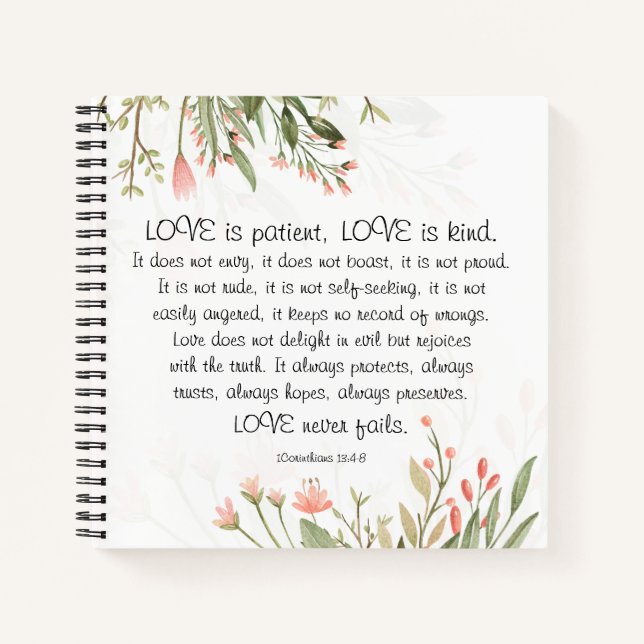 LOVE is patient, LOVE is kind.
It does not envy, it does not boast, it is not proud.
It is not rude, it is not self-seeking, it is not
easily angered, it keeps no record of wrongs.
Love does not delight in evil but rejoices
with the truth. It always protects, always
trusts, always hopes, always preserves.
LOVE never fails.
1Corinthians 13:4-8